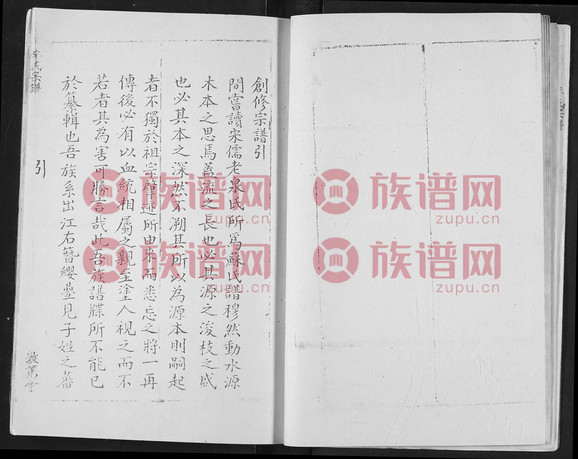 創修宗譜引
間嘗讀宋儒老泉氏所為蘇氏譜穆然動水源
木本之思焉蓋流之長也必其源之浚枝之盛
也必其本之深然不溯其所以為源本則嗣起
者不獨於祖宗肇迹所由來而悉忘之將一再
傳後必有以血統相屬之親至塗人視之而不
若者其為害可勝言哉此吾族譜牒所不能已
於纂輯也吾族系出江右簪纓疊見子姓之蕃
引
敦篤堂
李氏宗譜
族谱网
zupu.cn
族谱网
zupu.cn
族谱网
zupu.cn
族谱网
zupu.cn